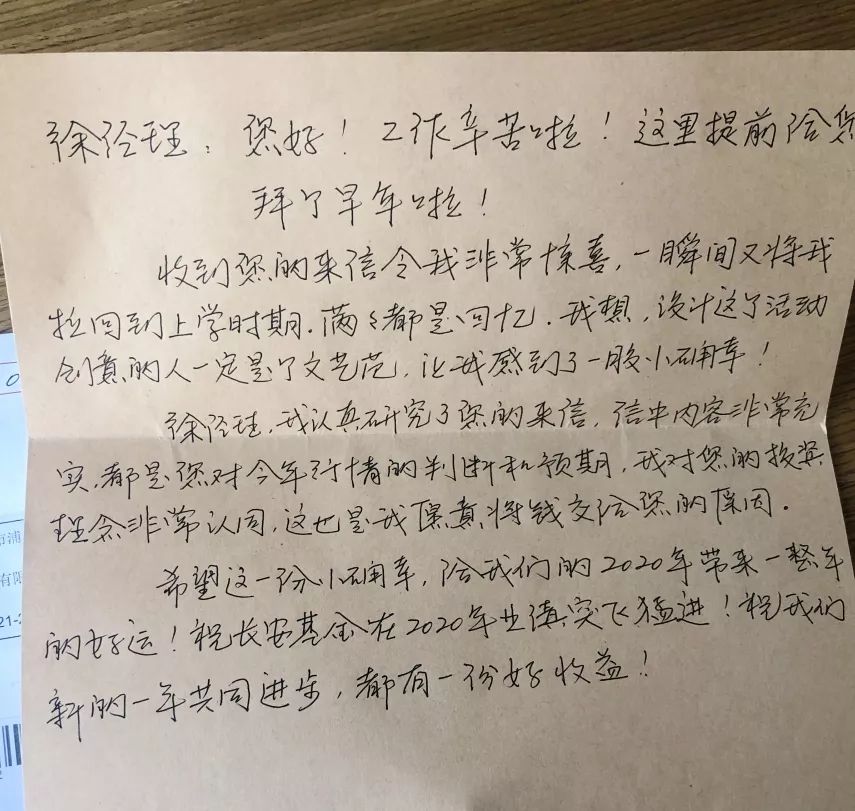 徐经理：您好！工作辛苦啦！这里提前给您
拜个早年啦！
收到您的来信令我非常惊喜，一瞬间又将我
拉回到上学时期．满满都是回忆．我想，设计这个活动
创意的人一定是个文艺范，让我感到了一股小确幸！
徐经理，我认真研究了您的来信，信中内容非常充
实，都是您对今年行情的判断和预期，我对您的投资
理念非常认同，这也是我愿意将钱交给您的原因．
希望这一份小确幸，给我们的2020年带来一整年
的好运！祝长安基金在2020年业绩突飞猛进！祝我们
新的一年共同进步，都有一份好收益！
0
市浦
有限
21-2